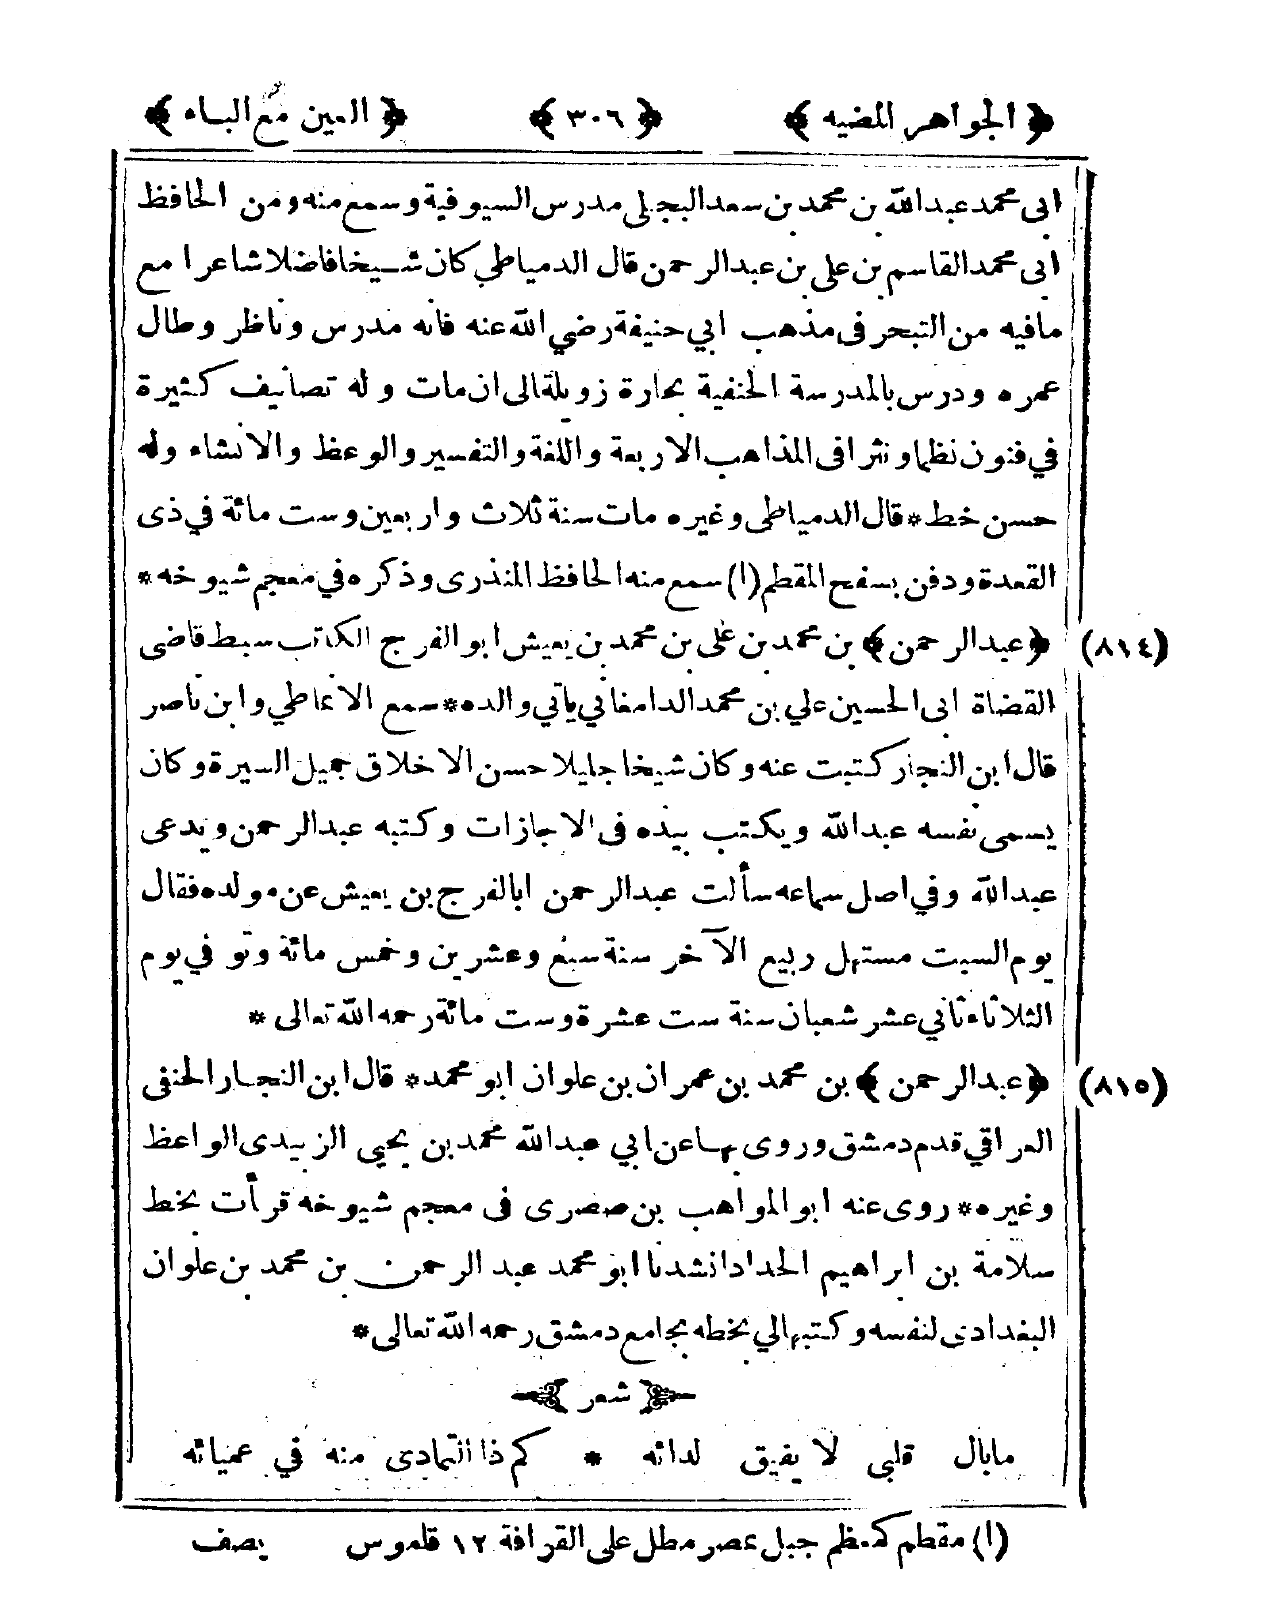 ﴿ الجواهر المضيه ﴾ ﴿ ٣٠٦ ﴾ ﴿ العين مع الباء ﴾
ابى محمد عبد الله بن محمد بن سعد البجلى مدرس السيوفية وسمع منه ومن الحافظ
ابى محمد القاسم بن على بن عبد الرحمن قال الدمياطي كان شيخا فاضلا شاعرا مع
مافيه من التبحر فى مذهب ابي حنيفة رضي الله عنه فانه مدرس وناظر وطال
عمره ودرس بالمدرسة الحنفية بحارة زويلة الى ان مات وله تصانيف كثيرة
في فنون نظما ونثرا فى المذاهب الاربعة واللغة والتفسير والوعظ والانشاء وله
حسن خط * قال الدمياطى وغيره مات سنة ثلاث واربعين وست مائة في ذى
القعدة ودفن بسفح المقطم (١) سمع منه الحافظ المنذرى وذكره في معجم شيوخه *
﴿ عبد الرحمن ﴾ بن محمد بن على بن محمد بن يعيش ابو الفرج الكاتب سبط قاضى (٨١٤)
القضاة ابى الحسين علي بن محمد الدامغاني يأتي والده * سمع الانماطي وابن ناصر
قال ابن النجار كتبت عنه وكان شيخا جليلا حسن الاخلاق جميل السيرة وكان
يسمى نفسه عبد الله ويكتب بيده فى الاجازات وكتبه عبد الرحمن ويدعى
عبد الله وفي اصل سماعه سألت عبد الرحمن ابا الفرج بن يعيش عن مولده فقال
يوم السبت مستهل ربيع الآخر سنة سبع وعشرين وخمس مائة وتوفي يوم
الثلاثاء ثاني عشر شعبان سنة ست عشرة وست مائة رحمه الله تعالى *
﴿ عبد الرحمن ﴾ بن محمد بن عمران بن علوان ابو محمد * قال ابن النجار الحنفى (٨١٥)
العراقي قدم دمشق وروى بها عن ابي عبد الله محمد بن يحيى الزبيدى الواعظ
وغيره * روى عنه ابو المواهب بن صصرى فى معجم شيوخه قرأت بخط
سلامة بن ابراهيم الحداد انشدنا ابو محمد عبد الرحمن بن محمد بن علوان
البغدادى لنفسه وكتبها لي بخطه بجامع دمشق رحمه الله تعالى *
﴿ شعر ﴾
مابال قلبى لا يفيق لدائه * كم ذا التمادى منه في عميائه
(١) مقطم كمعظم جبل بمصر مطل على القرافة ١٢ قاموس يصف